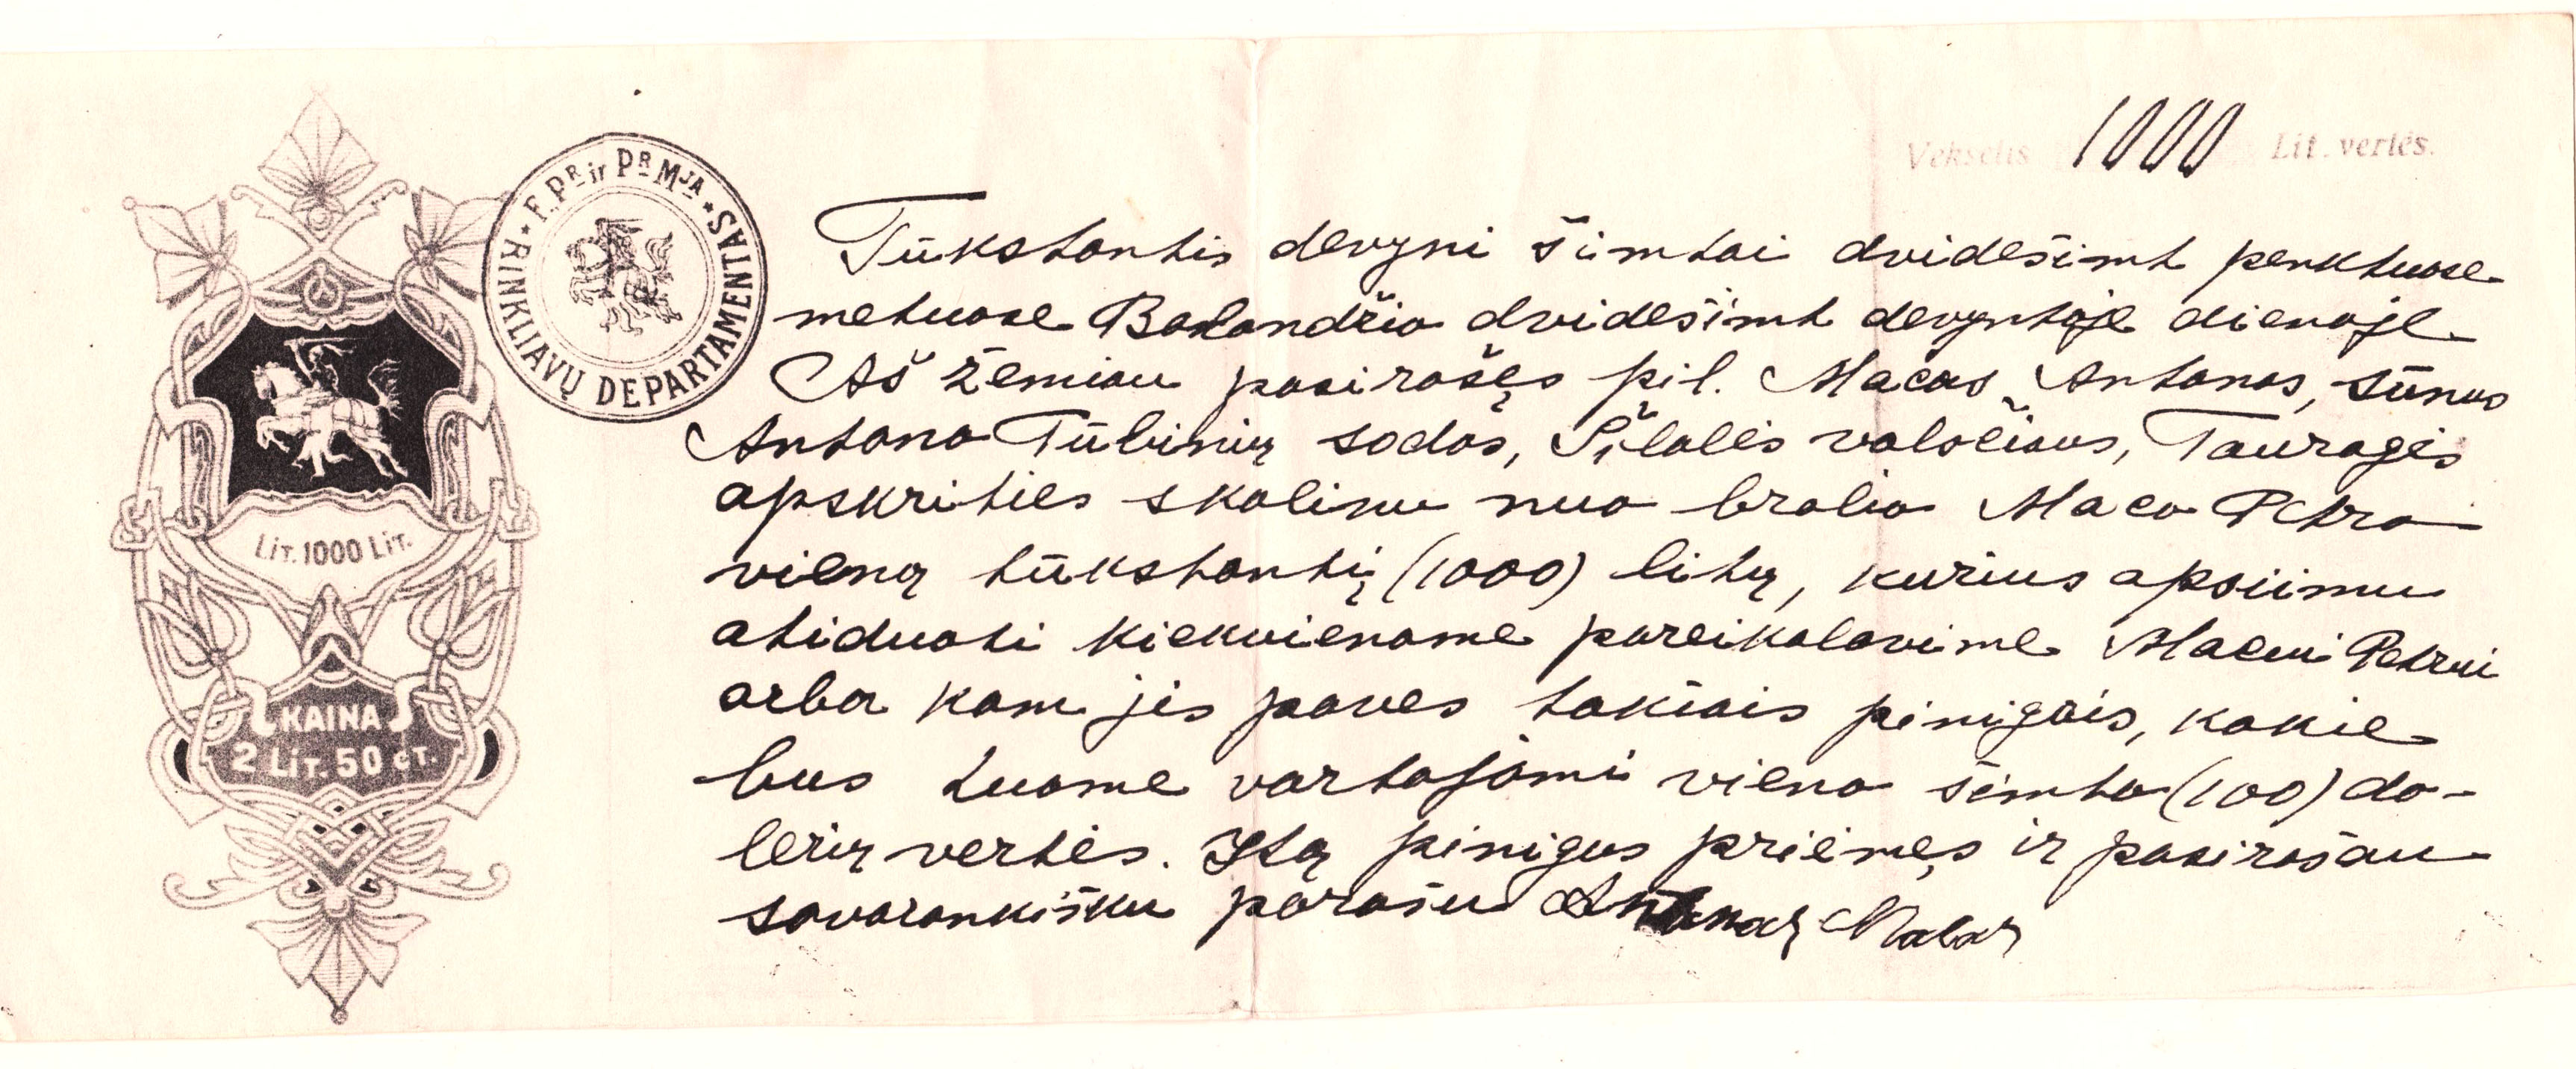 Vekselis 1000 Lit. vertės.
★ F. Pᴿ ir Pᴿ Mᴶᴬ ★ RINKLIAVŲ DEPARTAMENTAS
LIT. 1000 LIT.
KAINA
2 LIT. 50 CT.
Tūkstantis devyni šimtai dvidešimt penktuose
metuose Balandžio dvidešimt devyntoje dienoje
Aš žemiau pasirašęs pil. Macas Antanas, sūnus
Antano Tūbinių sodos, Šilalės valsčiaus, Tauragės
apskrities skolinu nuo brolio Maco Petro
vieną tūkstantį (1000) litų, kurius apsiimu
atiduoti kiekvienome pareikalavime Macui Petrui
arba kam jis paves tokiais pinigais, kokie
bus tuome vartojami vieno šimto (100) do-
lerių vertės. Itą pinigus priėmęs ir pasirašau
savarankišku parašu Antanas Macas